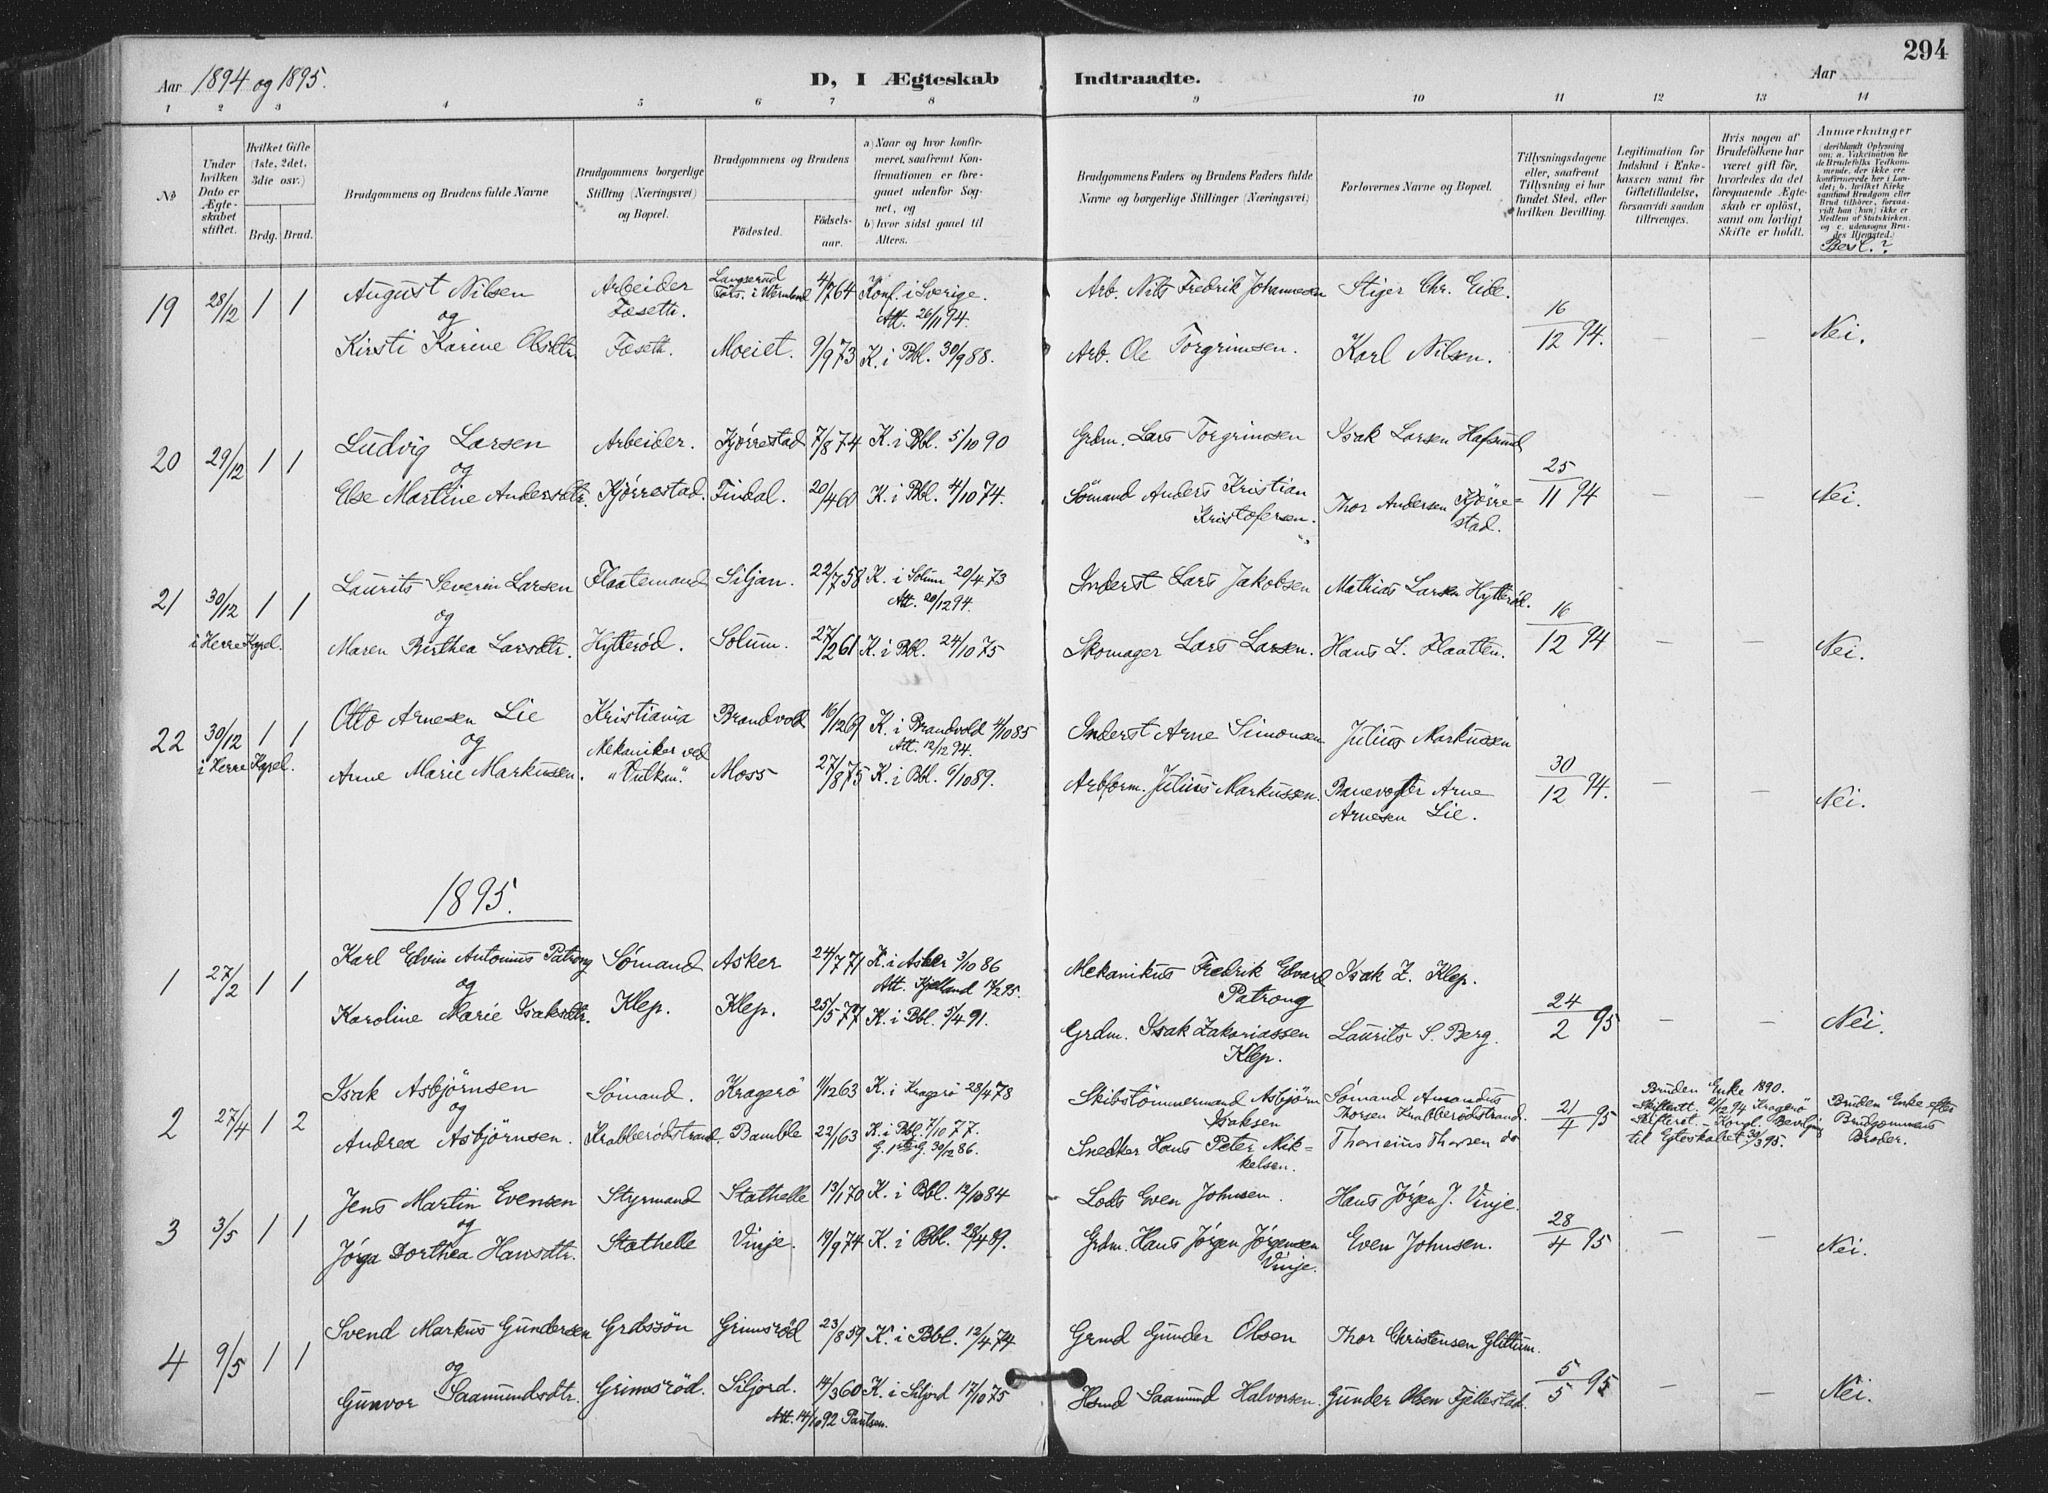 294
Aar 1894 og 1895.
D, I Ægteskab Indtraadte.
Aar
1 2 3 4 5 6 7 8 9 10 11 12 13 14
No
Under hvilken Dato er Ægteskabet stiftet.
Hvilket Gifte (1ste, 2det, 3die osv.)
Brdg. Brud.
Brudgommens og Brudens fulde Navne
Brudgommens borgerlige Stilling (Næringsvei) og Bopæl.
Brudgommens og Brudens
Fødested.
Fødselsaar.
a) Naar og hvor konfirmeret, saafremt Konfirmationen er foregaaet udenfor Sognet, og
b) hvor sidst gaaet til Alters.
Brudgommens Faders og Brudens Faders fulde Navne og borgerlige Stillinger (Næringsvei)
Forlovernes Navne og Bopæl.
Tillysningsdagene eller, saafremt Tillysning ei har fundet Sted, efter hvilken Bevilling.
Legitimation for Indskud i Enkekassen samt for Giftetilladelse, forsaavidt saadan tiltrænges.
Hvis nogen af Brudefolkene har været gift før, hvorledes da det foregaaende Ægteskab er opløst, samt om lovligt Skifte er holdt.
Anmærkninger
(deriblandt Oplysning om: a. Vaksination for de Brudefolks Vedkommende, der ikke ere konfirmerede her i Landet; b. hvilket Kirkesamfund Brudgom eller Brud tilhører, forsaavidt han (hun) ikke er Medlem af Statskirken, og c. udensogns Brudes Hjemsted.)
Besl.?
19 28/12 1 1 August Nilsen Arbeider Langserud Fors. i Wermland 4/7 64 Konf. i Sverige. Arb. Nils Fredrik Johannesen Stiger Chr. Eibe.
og Fosseth. Att. 26/11 94. 16/12 94. – – Nei.
Kirsti Karine Olsdtr. Fosseth. Moeiet. 9/9 73 K. i Bbl. 30/9 88. Arb. Ole Torgrimsen. Karl Nilsen.
20 29/12 1 1 Ludvig Larsen Arbeider. Kjørrestad 7/8 74 K. i Bbl. 5/10 90 Grdm. Lars Torgrimsen Isak Larsen Hafsund
og 25/11 94 – – Nei.
Else Martine Andersdtr. Kjørrestad. Findal. 20/4 60 K. i Bbl. 4/10 74. Sømand Anders Kristian Kristofersen. Thor Andersen Kjørrestad.
21 30/12 1 1 Laurits Severin Larsen Flaatemand Siljan. 22/7 58 K. i Solum 20/4 73 Inderst Lars Jakobsen Mathias Larsen Hytterød.
i Herre Kapel. og Att. 20/12 94. 16/12 94 – – Nei.
Maren Berthea Larsdtr. Hytterød. Solum. 27/2 61 K. i Bbl. 24/10 75 Skomager Lars Larsen. Hans L. Flaatten.
22 30/12 1 1 Otto Arnesen Lie Kristiania Brandvold 16/12 69 K. i Brandvold 4/10 85 Inderst Arne Simonsen Julius Markussen
i Herre Kapel. og Mekaniker ved Att. 12/12 94. 30/12 94. – Nei.
Anne Marie Markusen. "Vulkan". Moss 27/8 75 K. i Bbl. 6/10 89. Arbform. Julius Markussen. Banevogter Arne Arnesen Lie.
1895.
1 27/2 1 1 Karl Edvin Antonius Patrong Sømand Asker 24/7 71 K. i Asker 3/10 86 Mekanikus Fredrik Edvard Patrong Isak Z. Klep.
og Att. Kjelland 14/2 95. 24/2 95 – – Nei.
Karoline Marie Isaksdtr. Klep. Klep. 25/5 77 K. i Bbl. 5/4 91. Grdm. Isak Zakariassen Klep. Laurits S. Berg.
2 27/4 1 2 Isak Asbjørnsen Sømand. Kragerø 11/12 63 K. i Kragerø 28/4 78 Skibstømmermand Asbjørn Isaksen Sømand Amandus Thorsen Krabberødstrand.
og 21/4 95 Bruden Enke 1890. Skifteatt. 21/12 94 Kragerø Skifteret. – Kongl. Bevilging til Egteskabet 30/3 95. Bruden Enke efter Brudgommens Broder.
Andrea Asbjørnsen. Krabberødstrand. Bamble 22/1 63 K. i Bbl. 7/10 77. G. 1ste G. 30/12 86. Snedker Hans Peter Mikkelsen. Tharinius Thorsen do
3 3/5 1 1 Jens Martin Evensen Styrmand Stathelle 13/1 70 K. i Bbl. 12/10 84 Lods Even Johnsen. Hans Jørgen J. Vinje.
og 28/4 95 – – Nei.
Jørga Dorthea Hansdtr. Stathelle Vinje. 19/9 74 K. i Bbl. 28/4 89. Grdm. Hans Jørgen Jørgensen Vinje. Even Johnsen.
4 9/5 1 1 Svend Markus Gundersen Grdssøn Grimsrød 23/8 59 K. i Bbl. 12/4 74 Grmd Gunder Olsen Thor Christensen Glittum.
og 5/5 95 – – Nei.
Gunvor Saamundsdtr. Grimsrød. Siljord. 14/3 60 K. i Siljord 17/10 75 Hsmd Saamund Halvorsen. Gunder Olsen Fjellestad.
Att. 14/10 92 Paulsen.